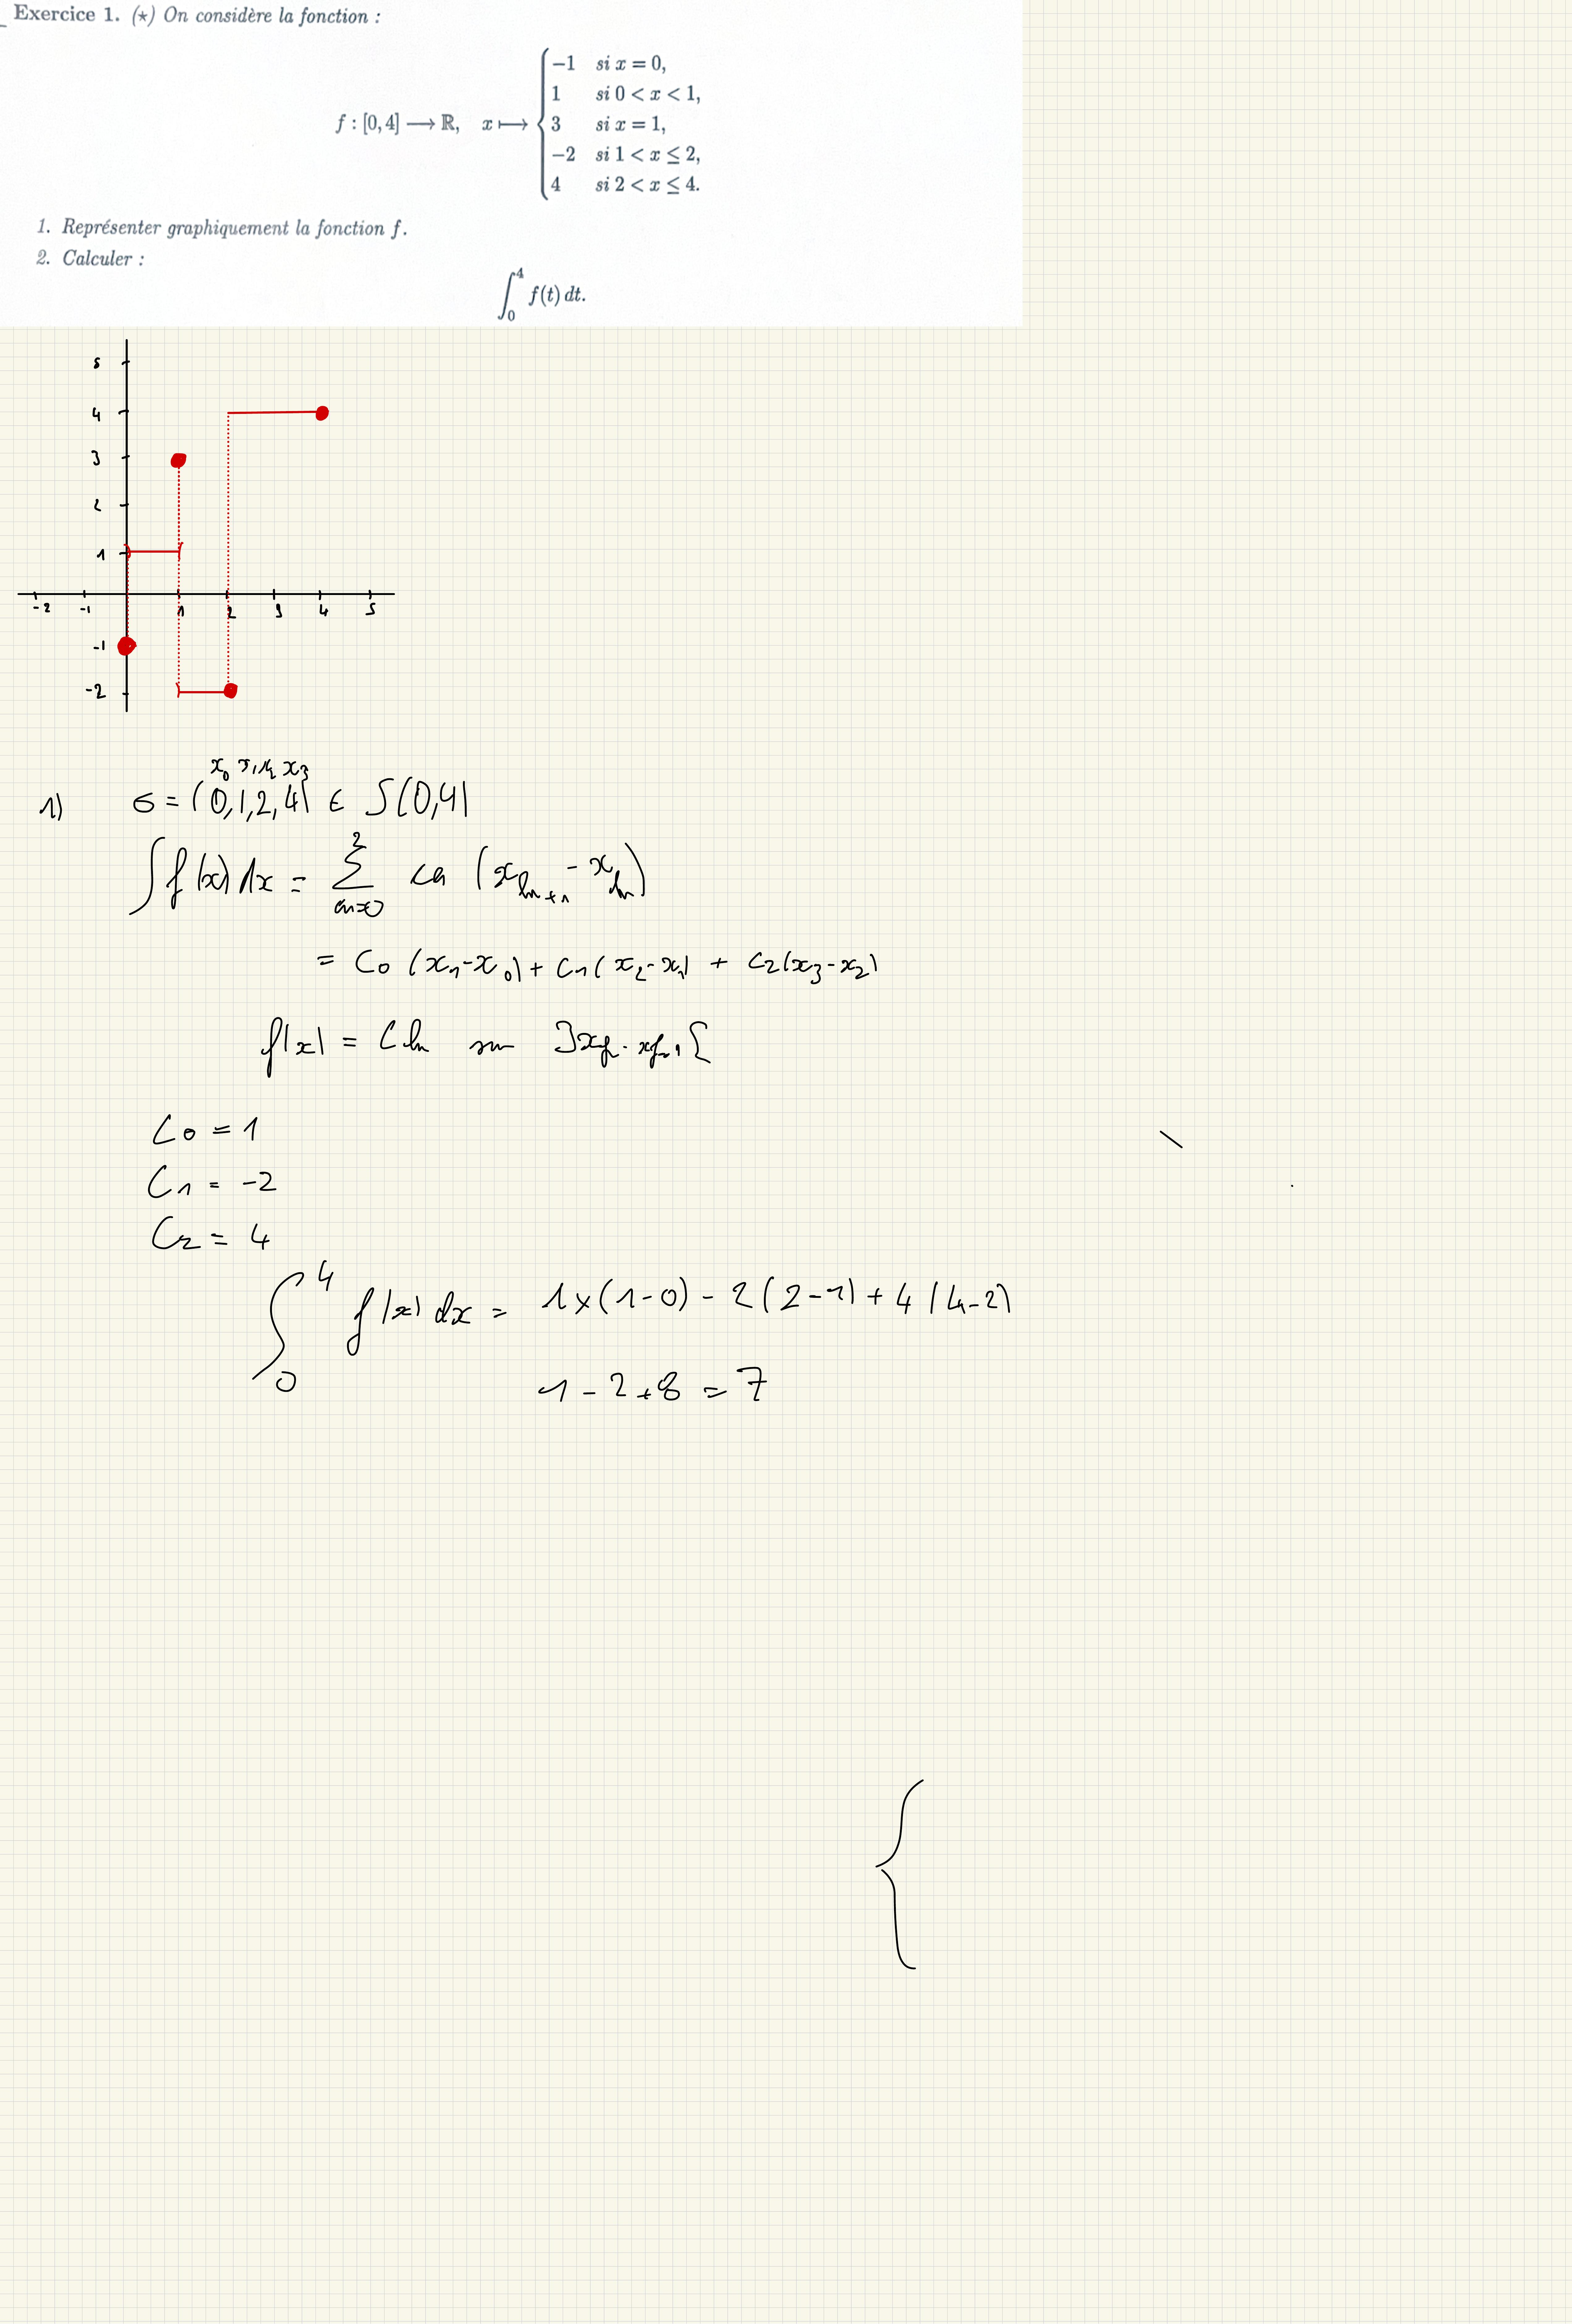 Exercice 1. (⋆) On considère la fonction :
f : [0, 4] ⟶ ℝ, x ⟼ {
−1 si x = 0,
1 si 0 < x < 1,
3 si x = 1,
−2 si 1 < x ≤ 2,
4 si 2 < x ≤ 4.
1. Représenter graphiquement la fonction f.
2. Calculer :
∫₀⁴ f(t) dt.
5
4
3
2
1
-2 -1 1 2 3 4 5
-1
-2
x₀ x₁ x₂ x₃
1) σ = (0,1,2,4) ∈ S(0,4)
∫ f(x) dx = Σ² ck (x_{k+1} - x_k)
= C₀ (x₁-x₀) + C₁ (x₂-x₁) + C₂ (x₃-x₂)
f(x) = Ck sur ]x_k . x_{k+1}[
C₀ = 1
C₁ = -2
C₂ = 4
∫₀⁴ f(x) dx = 1×(1-0) - 2(2-1) + 4(4-2)
1 - 2 + 8 = 7
{